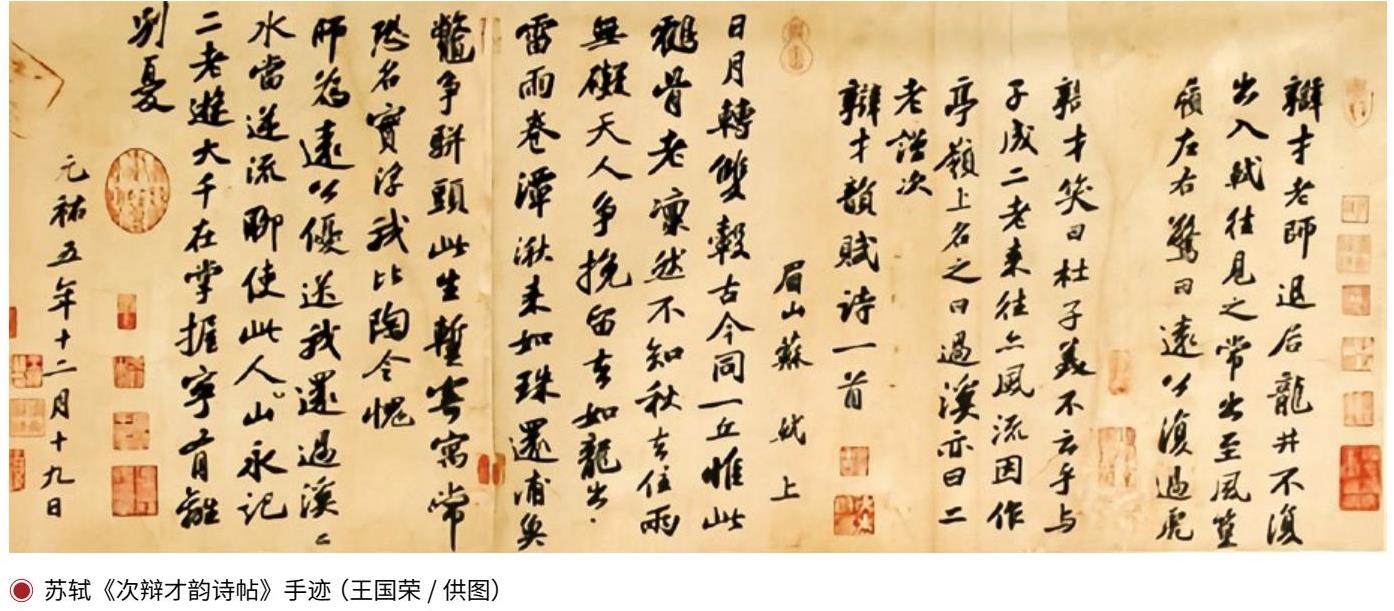 辯才老師退居龍井不復
出入軾往見之常出至風篁
嶺左右驚曰遠公復過虎
辯才笑曰杜子美不云乎與
子成二老來往亦風流因作
亭嶺上名之曰過溪亦曰二
老謹次
辯才韻賦詩一首
眉山蘇軾上
日月轉雙轂古今同一丘惟此
鶴骨老凜然不知秋去住兩
無礙天人爭挽留去如龍出
雷雨卷潭湫來如珠還浦魚
鱉爭駢頭此生暫寄寓常
恐名實浮我比陶令愧
師為遠公優送我還過溪〻
水當逆流聊使此人山永記
二老遊大千在掌握寧有離
別憂
元祐五年十二月十九日
苏轼《次辩才韵诗帖》手迹（王国荣 / 供图）